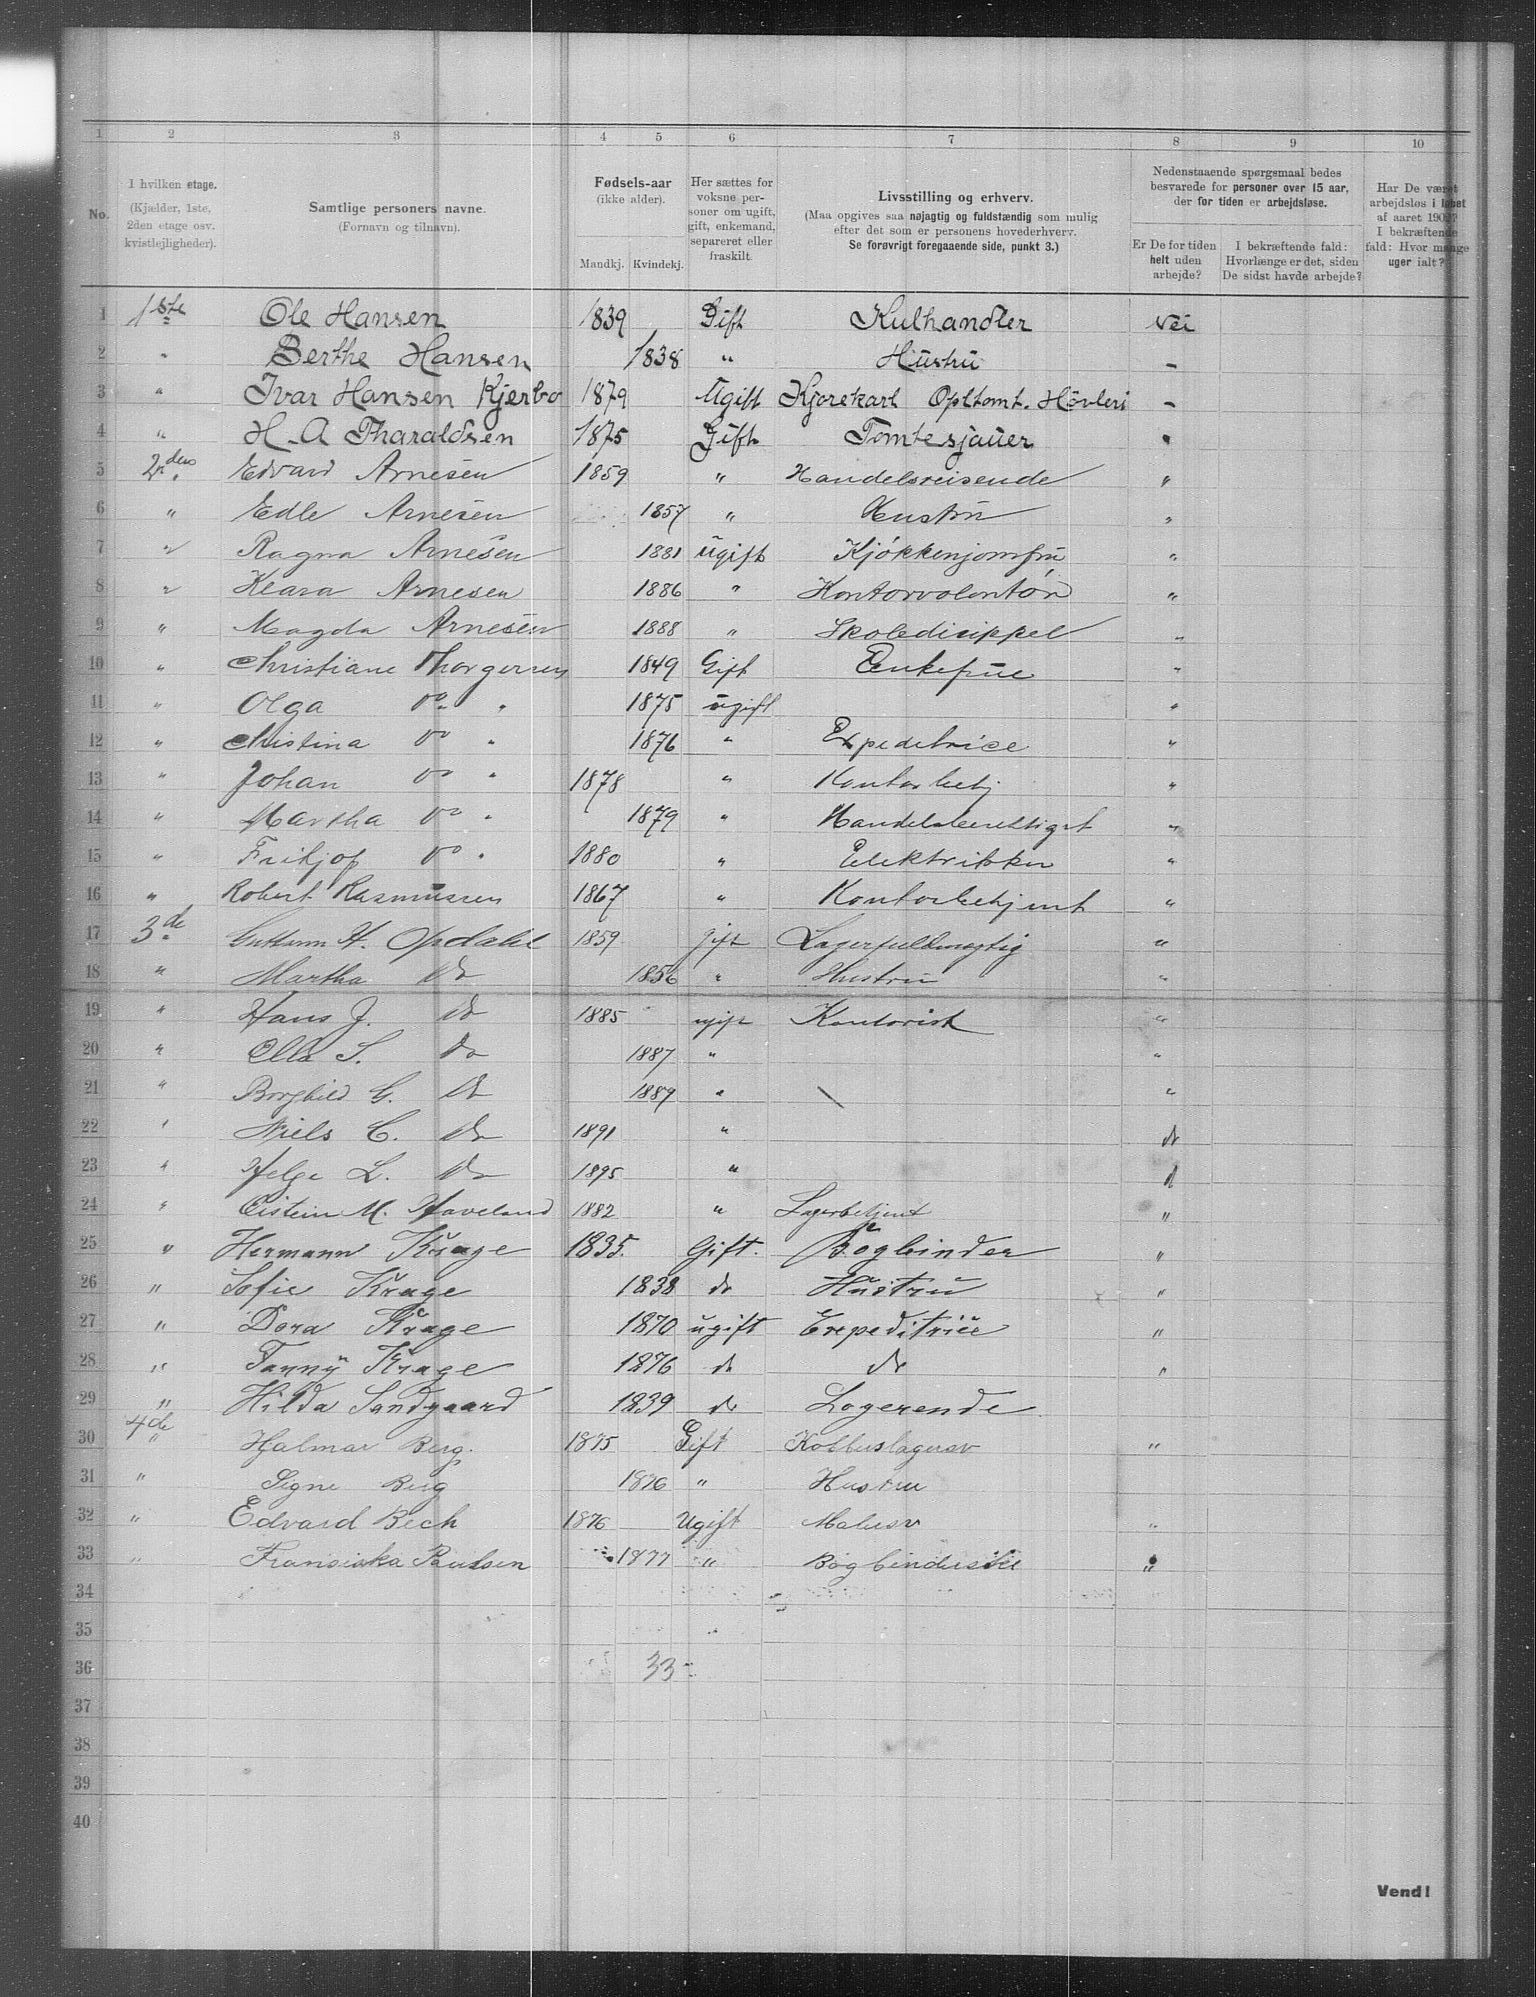 1 2 3 4 5 6 7 8 9 10
No.
I hvilken etage. (Kjælder, 1ste, 2den etage osv. kvistlejligheder).
Samtlige personers navne. (Fornavn og tilnavn).
Fødsels-aar (ikke alder). Mandkj. Kvindekj.
Her sættes for voksne personer om ugift, gift, enkemand, separeret eller fraskilt.
Livsstilling og erhverv. (Maa opgives saa nøjagtig og fuldstændig som mulig efter det som er personens hovederhverv. Se forøvrigt foregaaende side, punkt 3.)
Nedenstaaende spørgsmaal bedes besvarede for personer over 15 aar, der for tiden er arbejdsløse.
Er De for tiden helt uden arbejde?
I bekræftende fald: Hvorlænge er det, siden De sidst havde arbejde?
Har De været arbejdsløs i løbet af aaret 190 ? I bekræftende fald: Hvor mange uger ialt?
1 1ste Ole Hansen 1839 Gift Kulhandler Nei
2 " Berthe Hansen 1838 " Hustru -
3 " Ivar Hansen Kjerbo 1879 Ugift Kjørekarl Opltomt. Høvleri -
4 " H. A Tharaldsen 1875 Gift Tomtesjauer "
5 2den Edvard Arnesen 1859 " Handelsreisende "
6 " Edle Arnesen 1857 " Hustru "
7 " Ragna Arnesen 1881 ugift Kjøkkenjomfru "
8 " Klara Arnesen 1886 " Kontorvolontør "
9 " Magda Arnesen 1888 " Skoledisippel "
10 " Christiane Thorgersen 1849 Gift Enkefrue "
11 " Olga Do " 1875 ugift "
12 " Christina Do " 1876 " Expeditrice "
13 " Johan Do " 1878 " Kontorbetj "
14 " Martha Do " 1879 " Handelsberettiget "
15 " Frithjof Do " 1880 " Elektriker "
16 " Robert Rasmussen 1867 " Kontorbetjent "
17 3de Guttorm H. Opdahl 1859 gift Lagerfuldmægtig "
18 " Martha Do 1856 " Hustru "
19 " Hans J. Do 1885 ugift Kontorist "
20 " Ella S. Do 1887 " "
21 " Borghild G. Do 1889 " \ "
22 " Niels C. Do 1891 " do
23 " Helge L. Do 1895 " d
24 " Eistein M. Haveland 1882 " Lagerbetjent "
25 " Hermann Krage 1835. Gift. Bogbinder "
26 " Sofie Krage 1838 do Hustru "
27 " Dora Krage 1870 ugift Expeditrice "
28 " Fanny Krage 1876 do do "
29 " Hilda Sandgaard 1839 do Logerende
30 4de " Hjalmar Berg. 1875 Gift Kobberslagersv "
31 " Signe Berg 1876 " Hustru
32 " Edvard Bech 1876 Ugift Malersv "
33 " Fransiska Paulsen 1877 " Bogbinderske "
34
35
36 33
37
38
39
40
Vend!